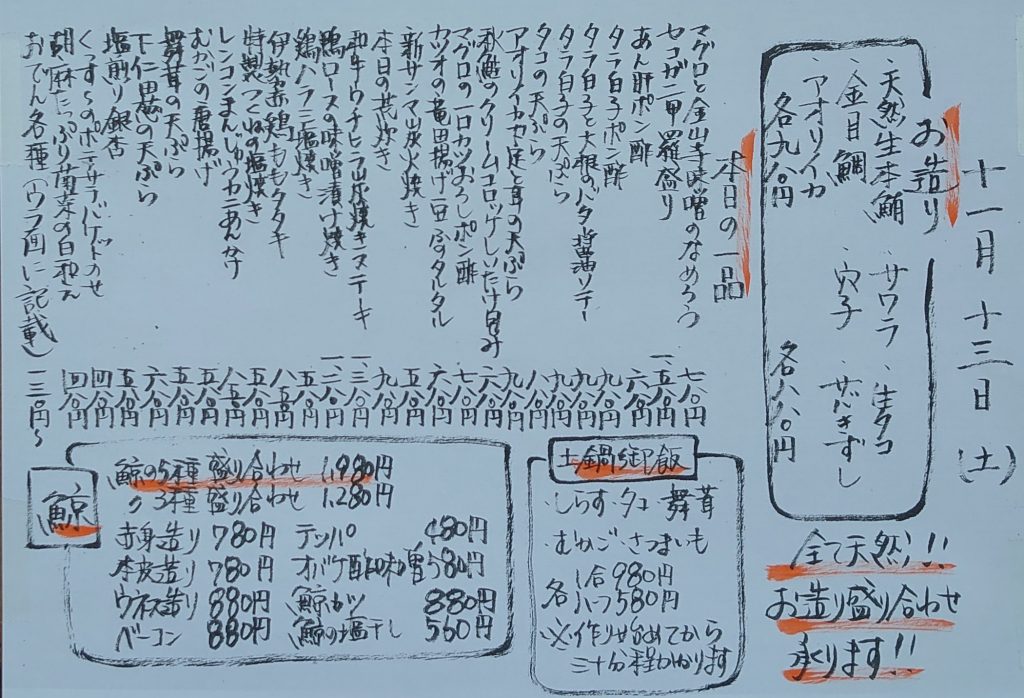 十一月十三日(土)
お造り
・天然生本鮪 ・サワラ ・生タコ
・金目鯛 ・穴子 ・サバきずし
・アオリイカ
各九八〇円 各八八〇円
全て天然!!
お造り盛り合わせ
承ります!!
本日の一品
マグロと金山寺味噌のなめろう 七八〇円
セコガニ甲羅盛り 一、五八〇円
あん肝ポン酢 六八〇円
タラ白子ポン酢 九八〇円
タラ白子と大根のバター醤油ソテー 九八〇円
タラ白子の天ぷら 九八〇円
タコの天ぷら 八八〇円
アオリイカゲソ足と耳の天ぷら 九八〇円
秋鮭のクリームコロッケしいたけ包み 六八〇円
マグロの一口カツおろしポン酢 七八〇円
カツオの竜田揚げ豆腐のタルタル 六八〇円
新サンマ山炭火焼き 五八〇円
本日の荒炊き 九八〇円
和牛ウチヒラ山炭焼きステーキ 一、三八〇円
鶏ロースの味噌漬け焼き 一、八〇円
鶏ハラミ塩焼き 五八〇円
伊勢赤鶏ももタタキ 八五〇円
特製つくねの塩焼き 五八〇円
レンコンまんじゅうカニあんかけ 八五〇円
むかごの唐揚げ 五八〇円
舞茸の天ぷら 五八〇円
下仁田葱の天ぷら 六八〇円
塩煎り銀杏 五八〇円
くっすらのポテサラバケットのせ 四八〇円
胡麻たっぷり菊菜の白和え 四八〇円
おでん各種(ウラ面に記載) 一三〇円〜
土鍋御飯
・しらす・タコ・舞茸
・むかご・さつまいも
各 1合 980円
ハーフ 580円
※作り始めてから
三十分程かかります
鯨
鯨の5種盛り合わせ 1,980円
〃 3種盛り合わせ 1,280円
赤身造り 780円 テッパ 480円
本皮造り 780円 オバケ酢味噌 580円
ウネス造り 880円 鯨カツ 880円
ベーコン 880円 鯨の塩干し 560円